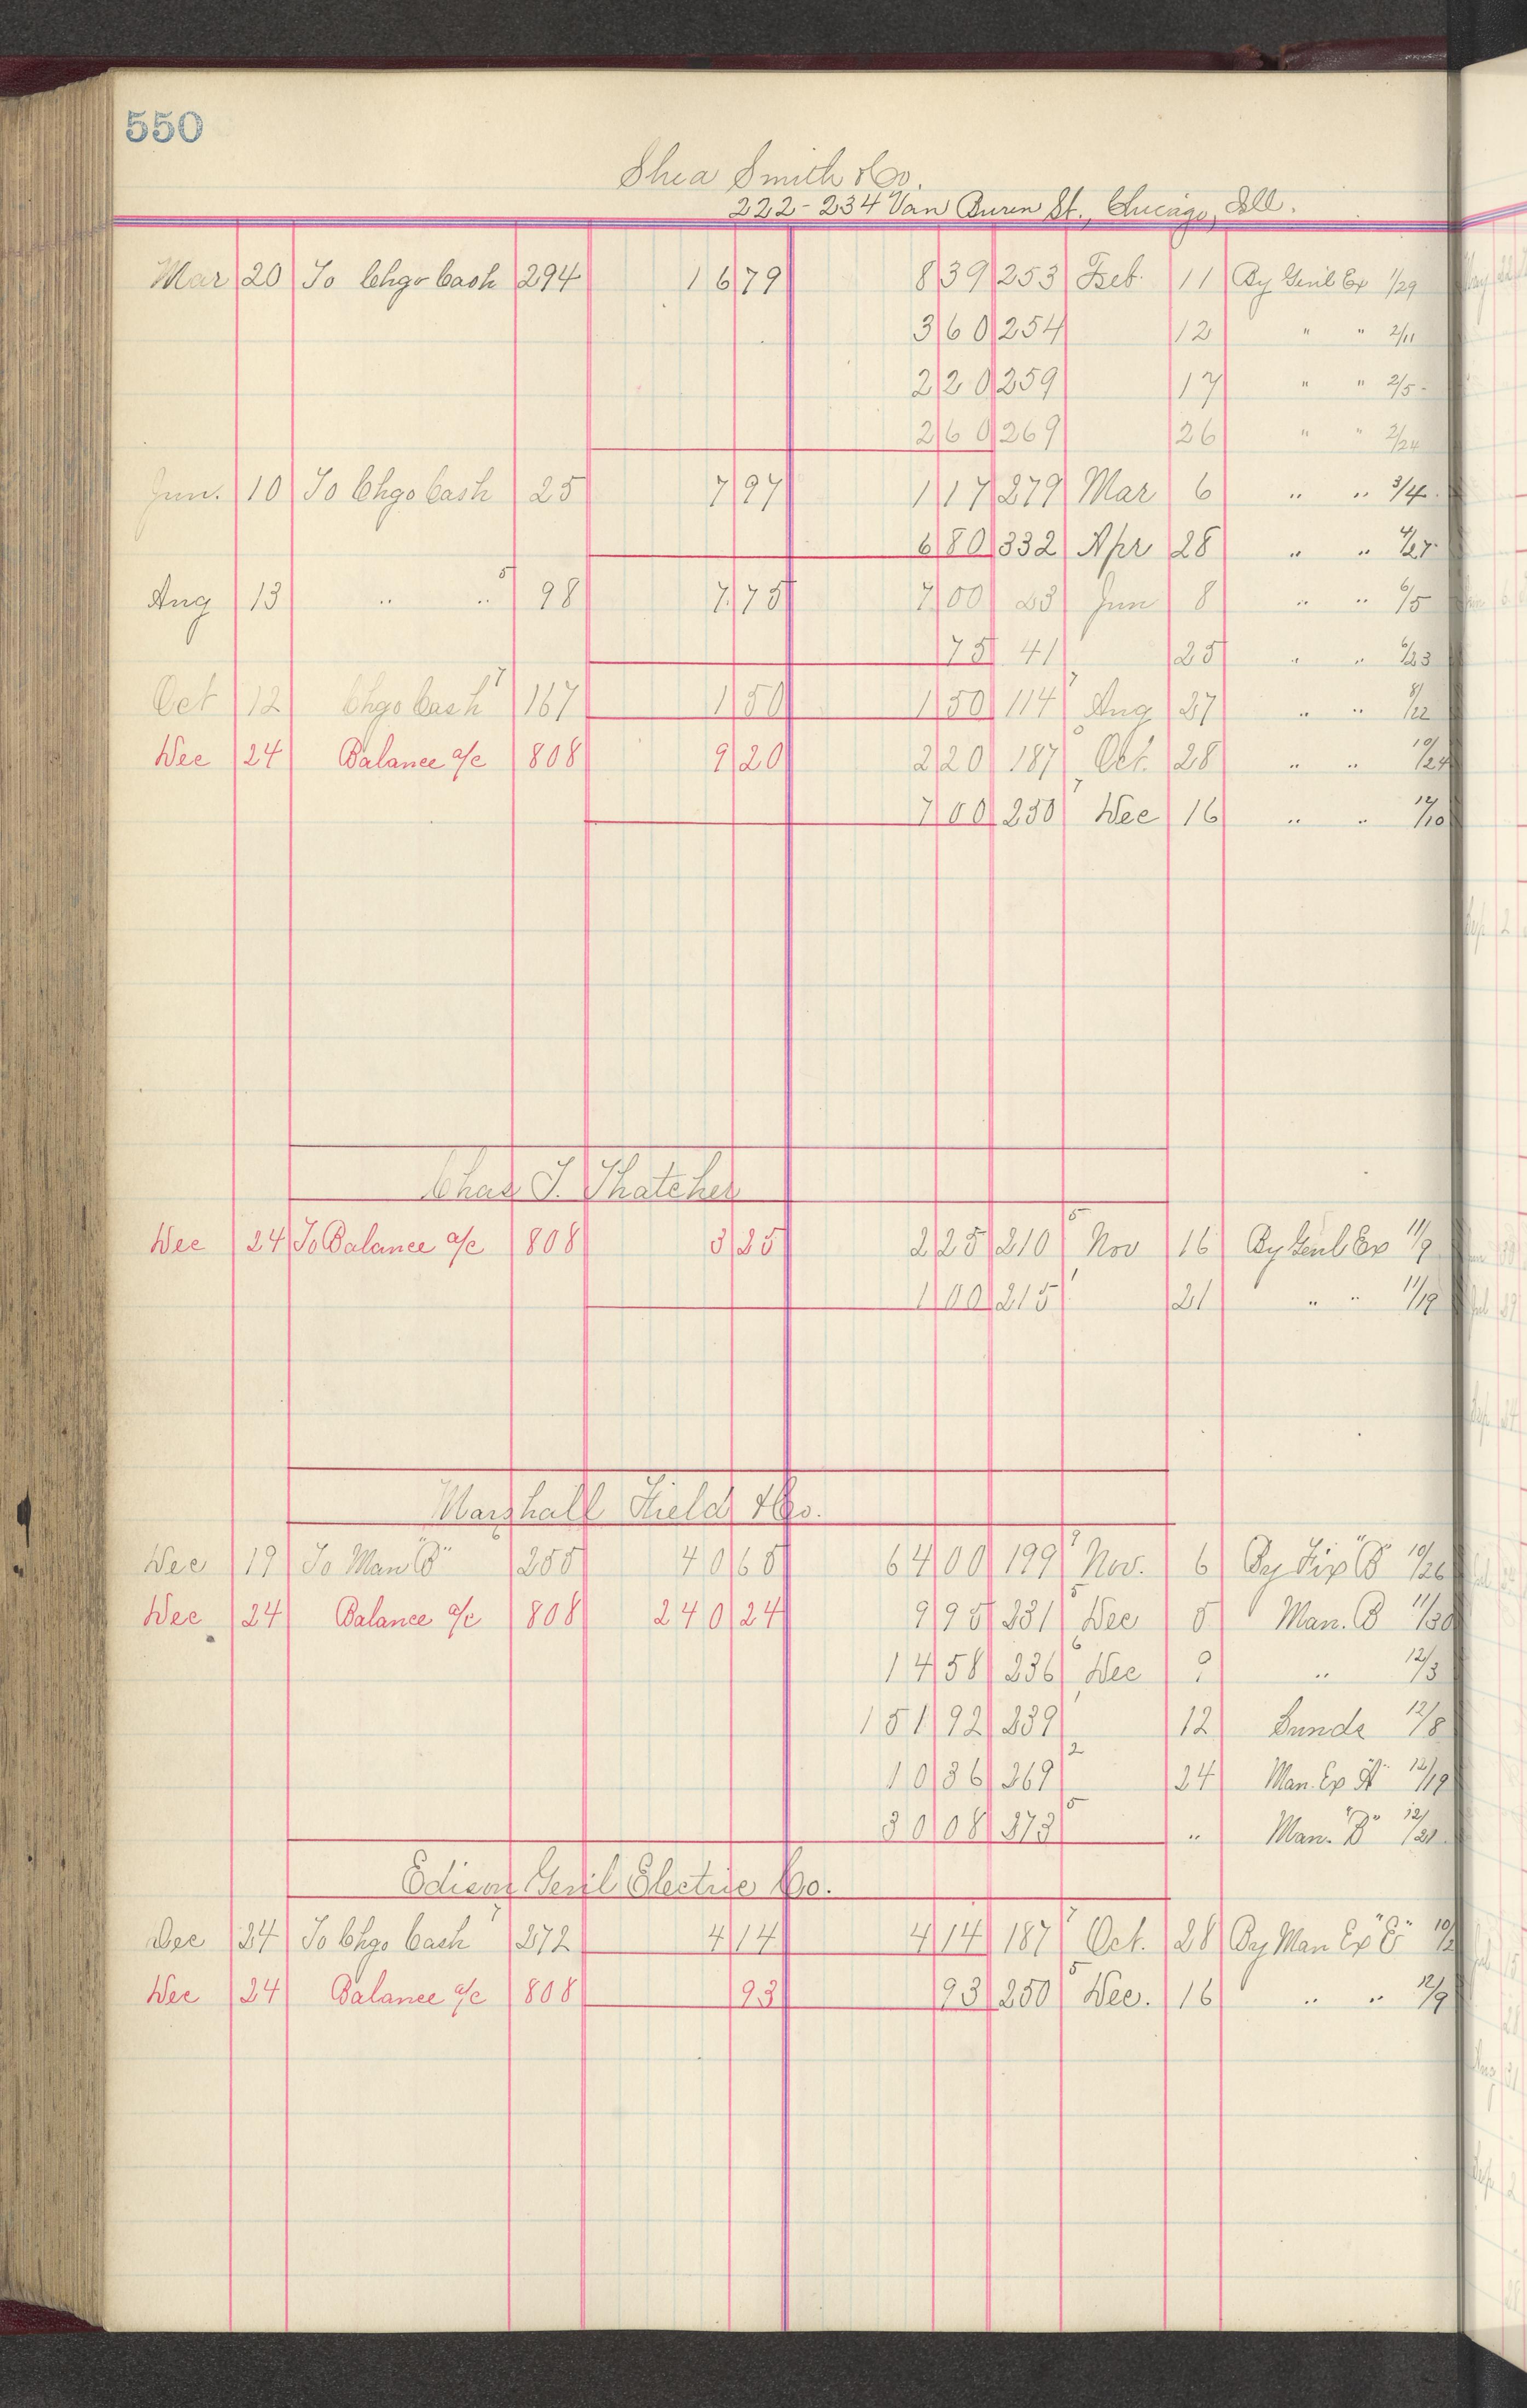 550
Shea Smith & Co.
222-234 Van Buren St., Chicago, Ill.
Mar 20 To Chgo Cash 294 16 79 8 39 253 Feb. 11 By Genl Ex 1/29
3 60 254 12 " " 2/11
2 20 259 17 " " 2/5
2 60 269 26 " " 2/24
Jun. 10 To Chgo Cash 25 7 97 1 17 279 Mar 6 " " 3/4
6 80 332 Apr 28 " " 4/27
Aug 13 " " 5 98 7 75 7 00 23 Jun 8 " " 6/5
75 41 25 " " 6/23
Oct 12 Chgo Cash 7 167 1 50 1 50 114 7 Aug 27 " " 8/22
Dec 24 Balance a/c 808 9 20 2 20 187 Oct. 28 " " 10/24
7 00 250 7 Dec 16 " " 12/10
Chas T. Thatcher
Dec 24 To Balance a/c 808 3 25 2 25 210 5 Nov 16 By Genl Ex 11/9
1 00 215 1 21 " " 11/19
Marshall Field & Co.
Dec 19 To Man "B" 6 255 40 65 64 00 199 7 Nov. 6 By Fix "B" 10/26
Dec 24 Balance a/c 808 240 24 9 95 231 5 Dec 5 Man. B 11/30
14 58 236 6 Dec 9 " 12/3
151 92 239 1 12 Sunds 12/8
10 36 269 2 24 Man. Ex "A" 12/19
30 08 273 5 " Man. "B" 12/21
Edison Genl Electric Co.
Dec 24 To Chgo Cash 1 272 4 14 4 14 187 7 Oct. 28 By Man Ex "E"
Dec 24 Balance a/c 808 93 93 250 5 Dec. 16 " " 12/9